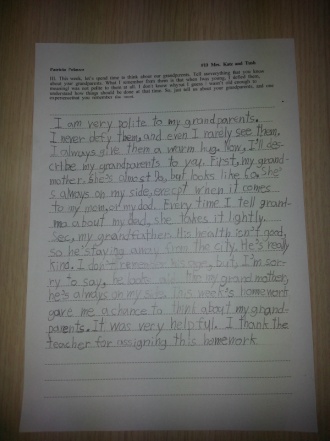 Patricia Polacco #10 Mrs. Katz and Tush
Hi. This week, let's spend time to think about our grandparents. Tell me everything that you know
about your grandparents. What I remember from them is that when I was young, I defied them,
meaning I was not polite to them at all. I don't know why but I guess I wasn't old enough to
understand how things should be done at that time. So, just tell us about your grandparents, and one
experience that you remember the most.
I am very polite to my grandparents.
I never defy them, and even I rarely see them,
I always give them a warm hug. Now, I'll des-
cribe my grandparents to you. First, my grand-
mother. She's almost but looks like She
's always on my side, except when it comes
to my mom, or my dad. Every time I tell grand-
ma about my dad, she takes it lightly.
Sec, my grandfather. His health isn't good,
so he's staying away from the city. He's really
kind. I don't remember his age, but, I'm sor-
ry to say, he looks old. like my grandmother,
he's always on my side. This week's homework
gave me a chance to think about my grand-
parents. It was very helpful. I thank the
teacher for assigning this homework.